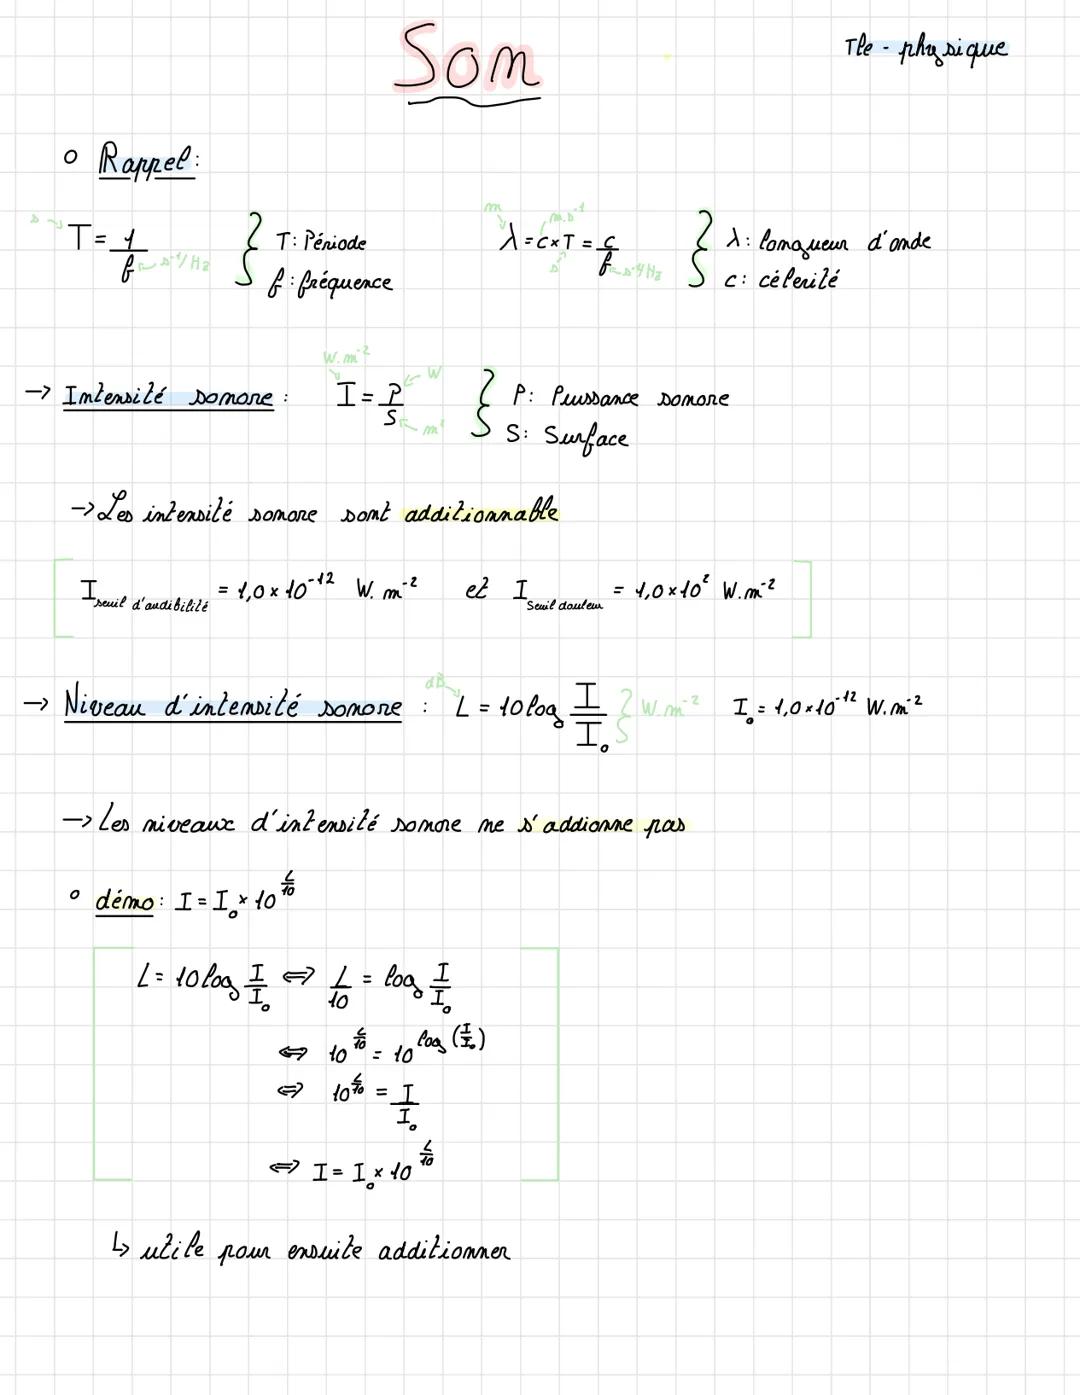 Son
Tle - physique
o Rappel:
s → T = 1/f ← s⁻¹/Hz } T: Période
f: fréquence
m → λ = c × T = c/f m.s⁻¹ s s⁻¹/Hz } λ: longueur d'onde
c: célerité
→ Intensité sonore : W.m⁻² I = P/S ← W ← m² } P: Puissance sonore
S: Surface
→ Les intensité sonore sont additionnable
I seuil d'audibilité = 1,0 × 10⁻¹² W.m⁻² et I Seuil douleur = 1,0 × 10² W.m⁻²
→ Niveau d'intensité sonore : dB → L = 10 log I/I₀ } W.m⁻² I₀ = 1,0 × 10⁻¹² W.m⁻²
→ Les niveaux d'intensité sonore ne s'addionne pas
o démo: I = I₀ × 10^(L/10)
L = 10 log I/I₀ ⇔ L/10 = log I/I₀
⇔ 10^(L/10) = 10^(log (I/I₀))
⇔ 10^(L/10) = I/I₀
⇔ I = I₀ × 10^(L/10)
↳ utile pour ensuite additionner